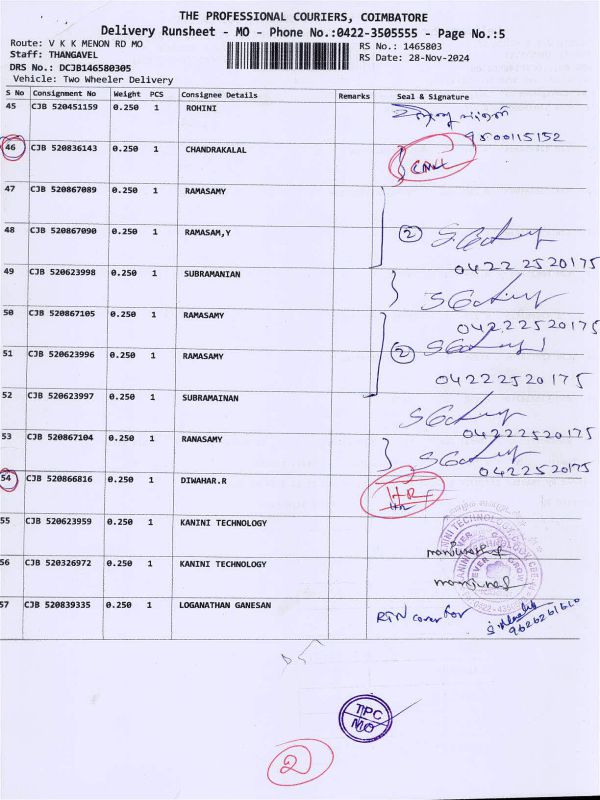 THE PROFESSIONAL COURIERS, COIMBATORE
Delivery Runsheet - MO - Phone No.:0422-3505555 - Page No.:5
Route: V K K MENON RD MO
RS No.: 1465803
Staff: THANGAVEL
RS Date: 28-Nov-2024
DRS No.: DCJB146580305
Vehicle: Two Wheeler Delivery
S No Consignment No Weight PCS Consignee Details Remarks Seal & Signature
45 CJB 520451159 0.250 1 ROHINI
9500115152
46 CJB 520836143 0.250 1 CHANDRAKALAL
47 CJB 520867089 0.250 1 RAMASAMY
48 CJB 520867090 0.250 1 RAMASAM,Y 2
0422 2520175
49 CJB 520623998 0.250 1 SUBRAMANIAN
04222520175
50 CJB 520867105 0.250 1 RAMASAMY
51 CJB 520623996 0.250 1 RAMASAMY 2
04222520175
52 CJB 520623997 0.250 1 SUBRAMAINAN
04222520175
53 CJB 520867104 0.250 1 RANASAMY
04222520175
54 CJB 520866816 0.250 1 DIWAHAR.R
55 CJB 520623959 0.250 1 KANINI TECHNOLOGY
56 CJB 520326972 0.250 1 KANINI TECHNOLOGY
57 CJB 520839335 0.250 1 LOGANATHAN GANESAN RTN cover for
9626261610
TPC
MO
2